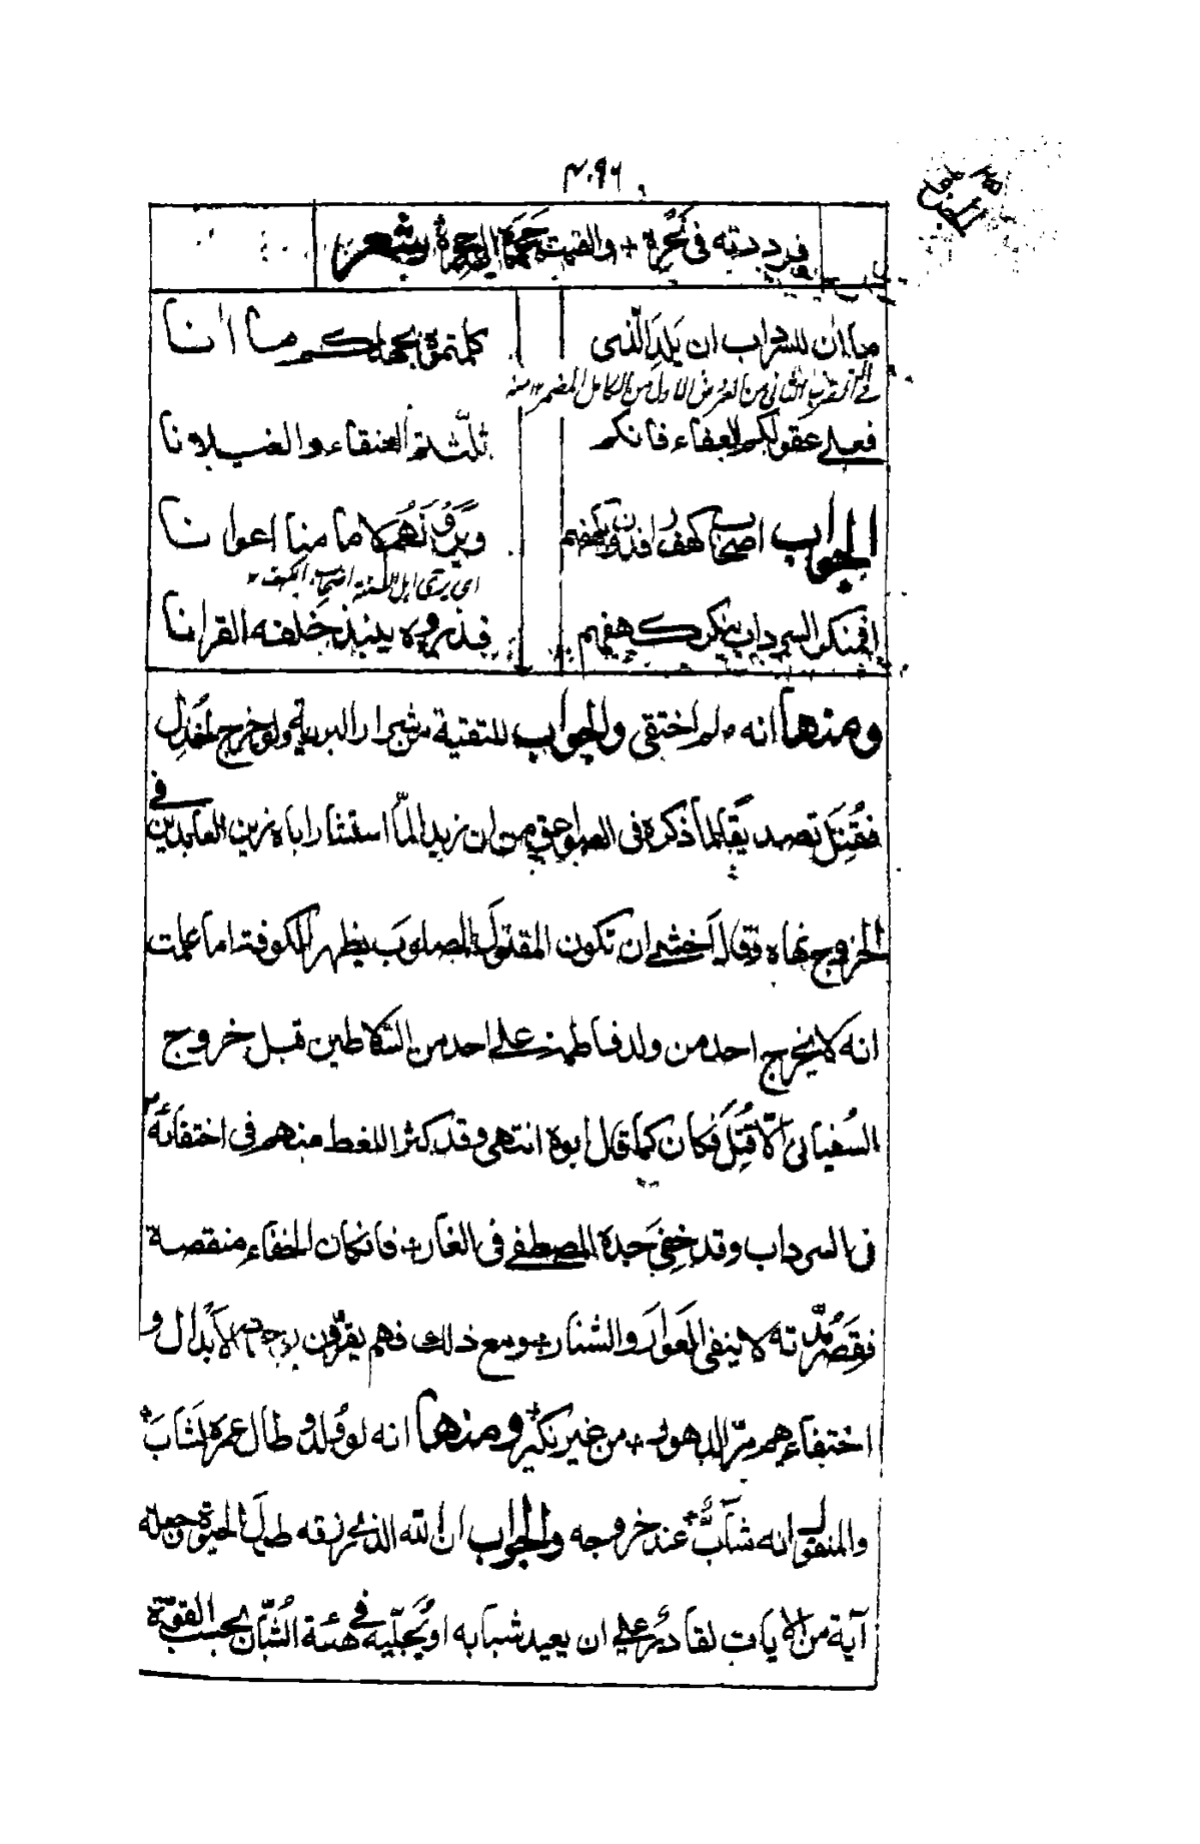 فرددته في نحره + والقمت حجرة بشعر
ما آن للسرداب ان يلد الذي كلمتموه بجهلكم ما آنا
من الضرب الثاني من العروض الاول من الكامل المضمر ١٢ منه
فعلى عقولكم العفاء فانكم ثلثتم العنقاء والغيلانا
الجواب اصحاب كهف ويرونهم لاما منا اعوانا
اى يرى اهل السنة اصحاب الكهف ١٢
افمنكر السرداب ينكر كهفهم فذروه ينبذ خلفه القرانا
ومنها انه لم اختفى والجواب للتقية من شرار البرية ولو خرج لخذل
فقتل تصديقا لما ذكره في الصواعق من ان زيدا لما استشار اباه زين العابدين في
الخروج نهاه وقال اخشى ان تكون المقتول المصلوب بظهر الكوفة اما علمت
انه لا يخرج احد من ولد فاطمة على احد من السلاطين قبل خروج
السفيانى الا قتل فكان كما قال ابوه انتهى وقد كثر اللغط منهم في اختفائه
في السرداب وقد خفي جده المصطفى في الغار + فان كان الخفاء منقصة
فقصر مدته لا ينفى العوار والشنار + ومع ذلك فهم يقرون بوجود الابدال و
اختفاءهم مر الدهور + من غير نكير + ومنها انه لو ولد وطال عمره لشاب +
والمنقول انه شاب عند خروجه والجواب ان الله الذى رزقه طول الحيوة وجعله
آية من الايات لقادر على ان يعيد شبابه او يجليه في هيئة الشبان بحسب القوة